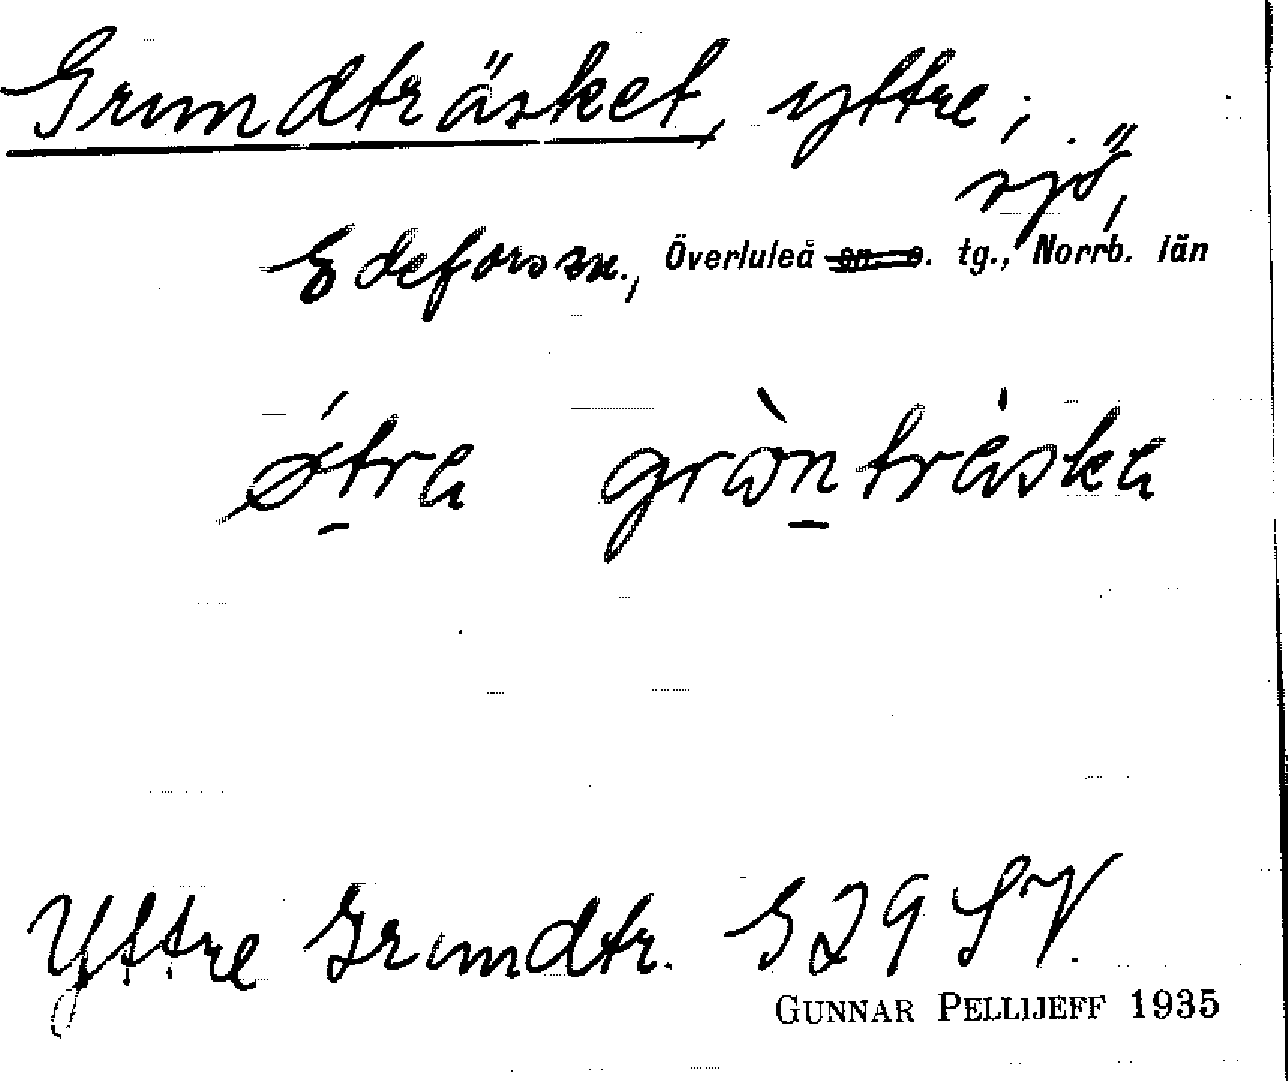 Grundträsket, yttre;
sjö,
Edeforssn., Överluleå sn. o. tg., Norrb. län
ǿt̠ra grὼn̠tràska
Yttre Grundtr. G29 SV.
GUNNAR PELLIJEFF 1935